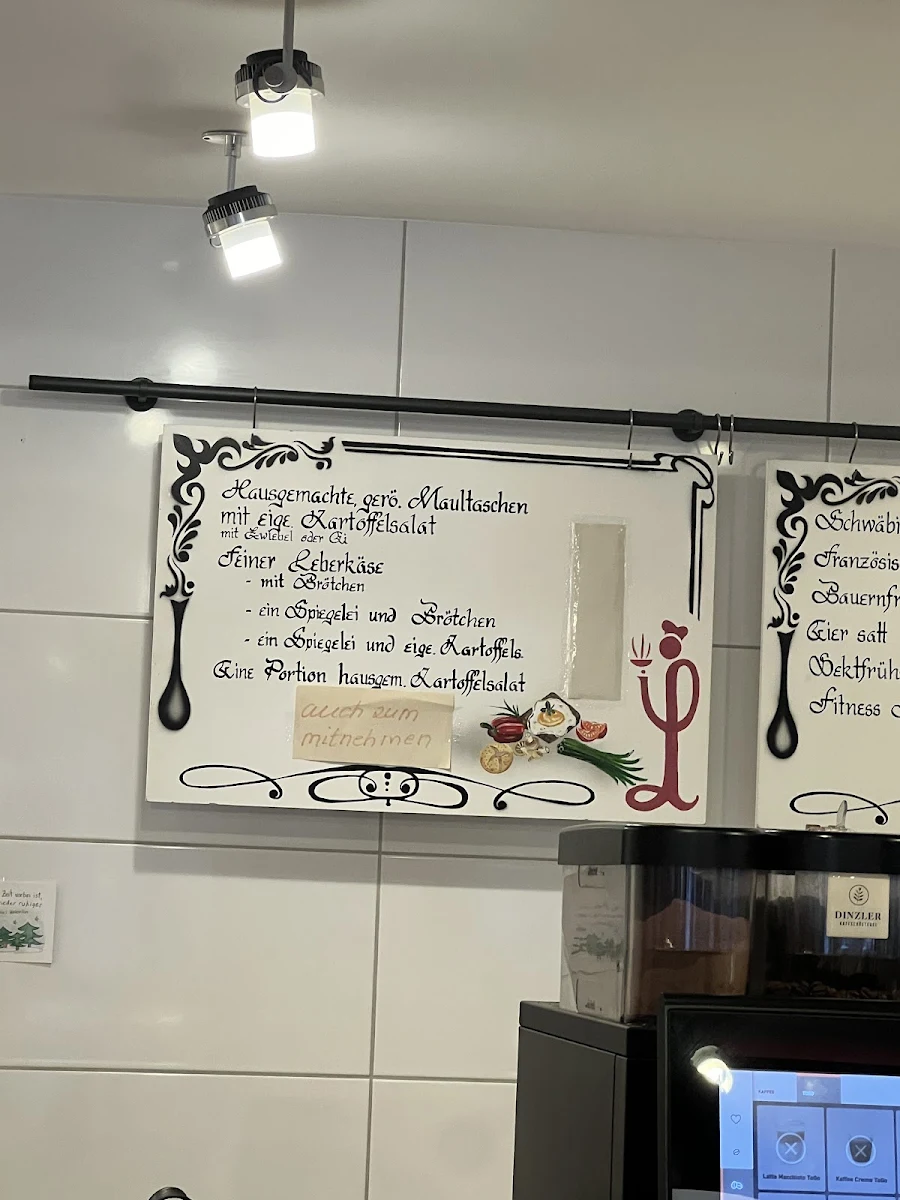 Hausgemachte, gerö. Maultaschen
mit eige. Kartoffelsalat
mit Zwiebel oder Ei
Feiner Leberkäse
- mit Brötchen
- ein Spiegelei und Brötchen
- ein Spiegelei und eige. Kartoffels.
Eine Portion hausgem. Kartoffelsalat
auch zum
mitnehmen
Schwäbi
Französis
Bauernfr
Eier satt
Sektfrüh
Fitness
Zeit vorbei ist,
ruhiger
DINZLER
KAFFEERÖSTEREI
KAFFEE
Latte Macchiato ToGo
Kaffee Creme ToGo